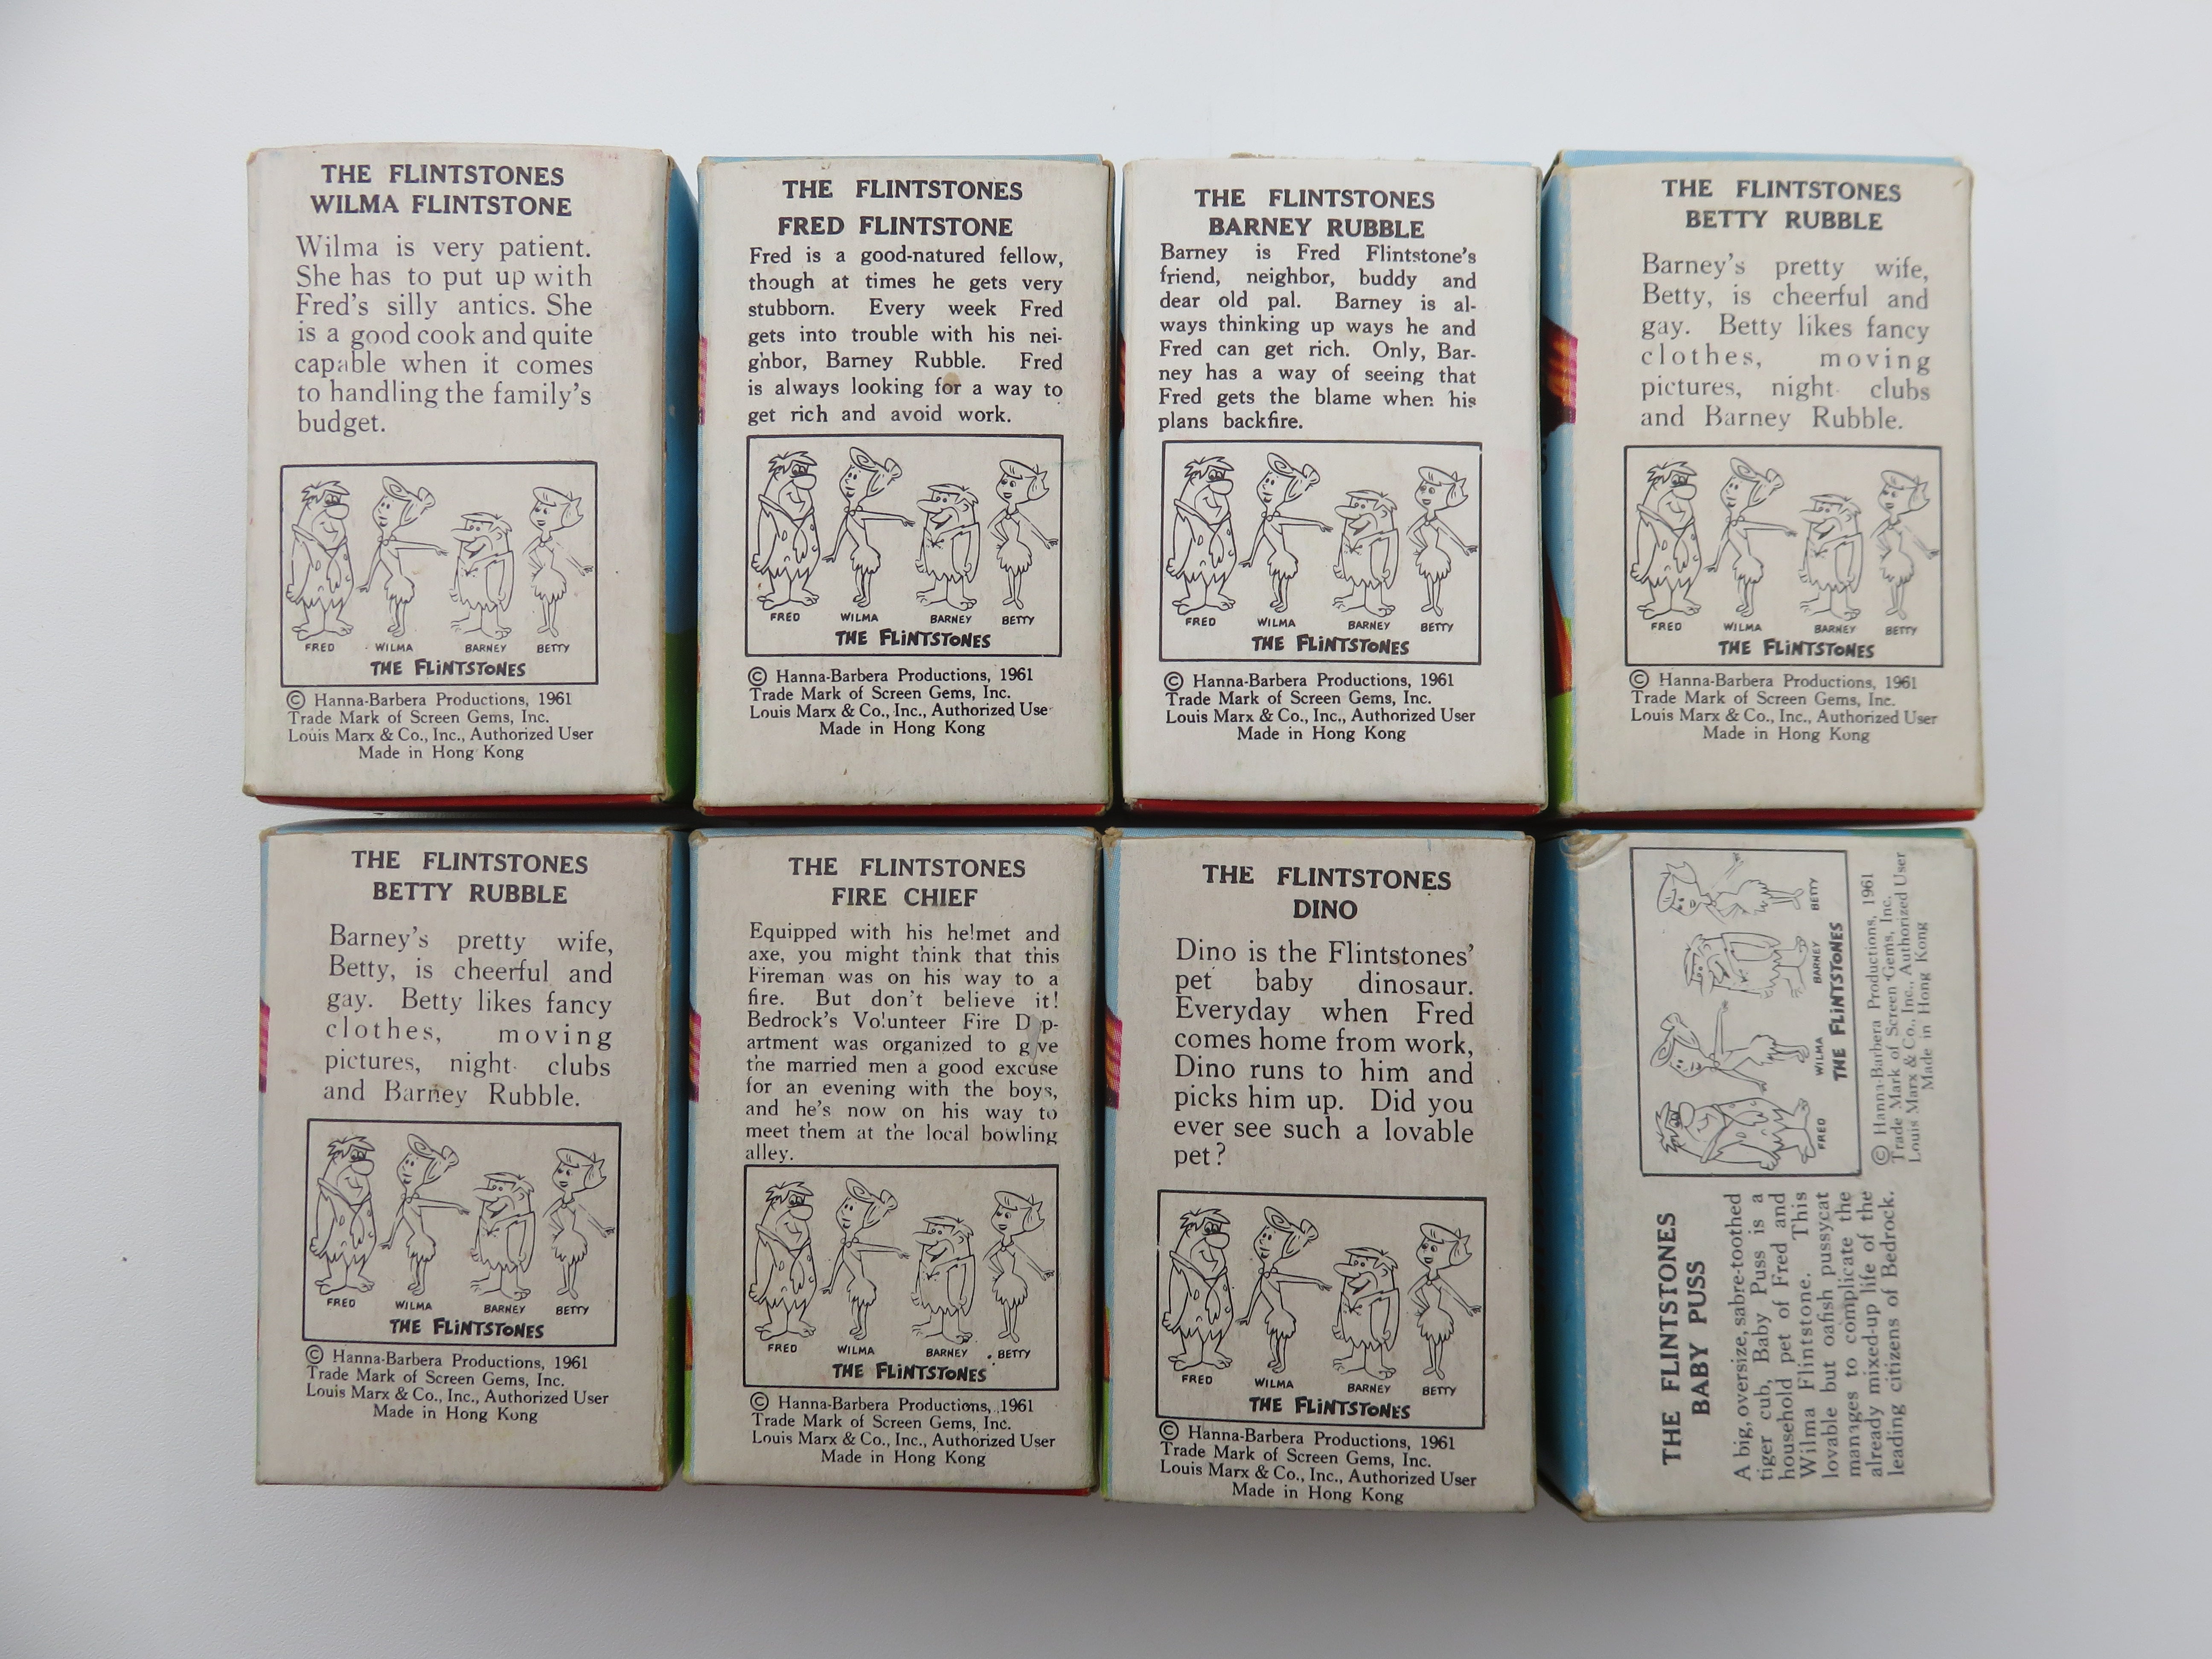 THE FLINTSTONES
WILMA FLINTSTONE
Wilma is very patient.
She has to put up with
Fred's silly antics. She
is a good cook and quite
capable when it comes
to handling the family's
budget.
FRED WILMA BARNEY BETTY
THE FLINTSTONES
© Hanna-Barbera Productions, 1961
Trade Mark of Screen Gems, Inc.
Louis Marx & Co., Inc., Authorized User
Made in Hong Kong
THE FLINTSTONES
FRED FLINTSTONE
Fred is a good-natured fellow,
though at times he gets very
stubborn. Every week Fred
gets into trouble with his nei-
ghbor, Barney Rubble. Fred
is always looking for a way to
get rich and avoid work.
FRED WILMA BARNEY BETTY
THE FLINTSTONES
© Hanna-Barbera Productions, 1961
Trade Mark of Screen Gems, Inc.
Louis Marx & Co., Inc., Authorized Use
Made in Hong Kong
THE FLINTSTONES
BARNEY RUBBLE
Barney is Fred Flintstone's
friend, neighbor, buddy and
dear old pal. Barney is al-
ways thinking up ways he and
Fred can get rich. Only, Bar-
ney has a way of seeing that
Fred gets the blame when his
plans backfire.
FRED WILMA BARNEY BETTY
THE FLINTSTONES
© Hanna-Barbera Productions, 1961
Trade Mark of Screen Gems, Inc.
Louis Marx & Co., Inc., Authorized User
Made in Hong Kong
THE FLINTSTONES
BETTY RUBBLE
Barney's pretty wife,
Betty, is cheerful and
gay. Betty likes fancy
clothes, moving
pictures, night clubs
and Barney Rubble.
FRED WILMA BARNEY BETTY
THE FLINTSTONES
© Hanna-Barbera Productions, 1961
Trade Mark of Screen Gems, Inc.
Louis Marx & Co., Inc., Authorized User
Made in Hong Kong
THE FLINTSTONES
BETTY RUBBLE
Barney's pretty wife,
Betty, is cheerful and
gay. Betty likes fancy
clothes, moving
pictures, night clubs
and Barney Rubble.
FRED WILMA BARNEY BETTY
THE FLINTSTONES
© Hanna-Barbera Productions, 1961
Trade Mark of Screen Gems, Inc.
Louis Marx & Co., Inc., Authorized User
Made in Hong Kong
THE FLINTSTONES
FIRE CHIEF
Equipped with his helmet and
axe, you might think that this
Fireman was on his way to a
fire. But don't believe it!
Bedrock's Volunteer Fire Dep-
artment was organized to give
the married men a good excuse
for an evening with the boys,
and he's now on his way to
meet them at the local bowling
alley.
FRED WILMA BARNEY BETTY
THE FLINTSTONES
© Hanna-Barbera Productions, 1961
Trade Mark of Screen Gems, Inc.
Louis Marx & Co., Inc., Authorized User
Made in Hong Kong
THE FLINTSTONES
DINO
Dino is the Flintstones'
pet baby dinosaur.
Everyday when Fred
comes home from work,
Dino runs to him and
picks him up. Did you
ever see such a lovable
pet?
FRED WILMA BARNEY BETTY
THE FLINTSTONES
© Hanna-Barbera Productions, 1961
Trade Mark of Screen Gems, Inc.
Louis Marx & Co., Inc., Authorized User
Made in Hong Kong
THE FLINTSTONES
BABY PUSS
A big, oversize, sabre-toothed
tiger cub, Baby Puss is a
household pet of Fred and
Wilma Flintstone. This
lovable but oafish pussycat
manages to complicate the
already mixed-up life of the
leading citizens of Bedrock.
FRED WILMA BARNEY BETTY
THE FLINTSTONES
© Hanna-Barbera Productions, 1961
Trade Mark of Screen Gems, Inc.
Louis Marx & Co., Inc., Authorized User
Made in Hong Kong